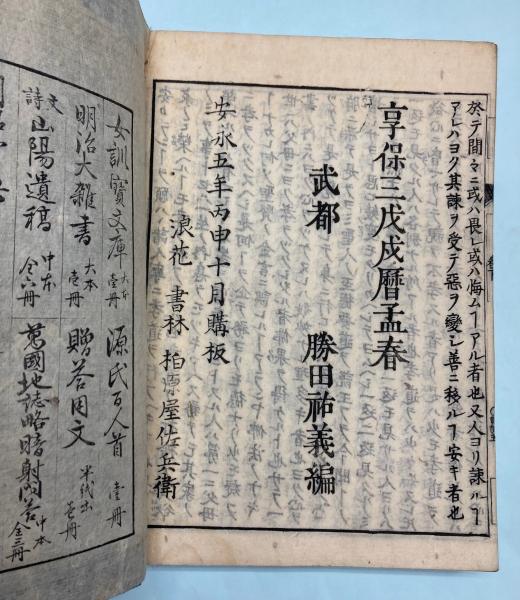 於テ間々ニ或ハ畏レ或ハ悔ムヿアル者也又人ヨリ諫ルヿ
アレハヨク其諫ヲ受テ惡ヲ變シ善ニ移ルヿ安キ者也
享保三戊戌曆孟春
武都 勝田祐義編
安永五年丙申十月購板
浪花 書林 柏原屋佐兵衛
女訓寶文庫 大本 壹冊
源氏百人首 壹冊
明治大雜書 大本 壱冊
贈答用文 半紙出 壱冊
詩文 山陽遺稿 中本 全六冊
萬國地誌略暗射問答 中本 全三冊